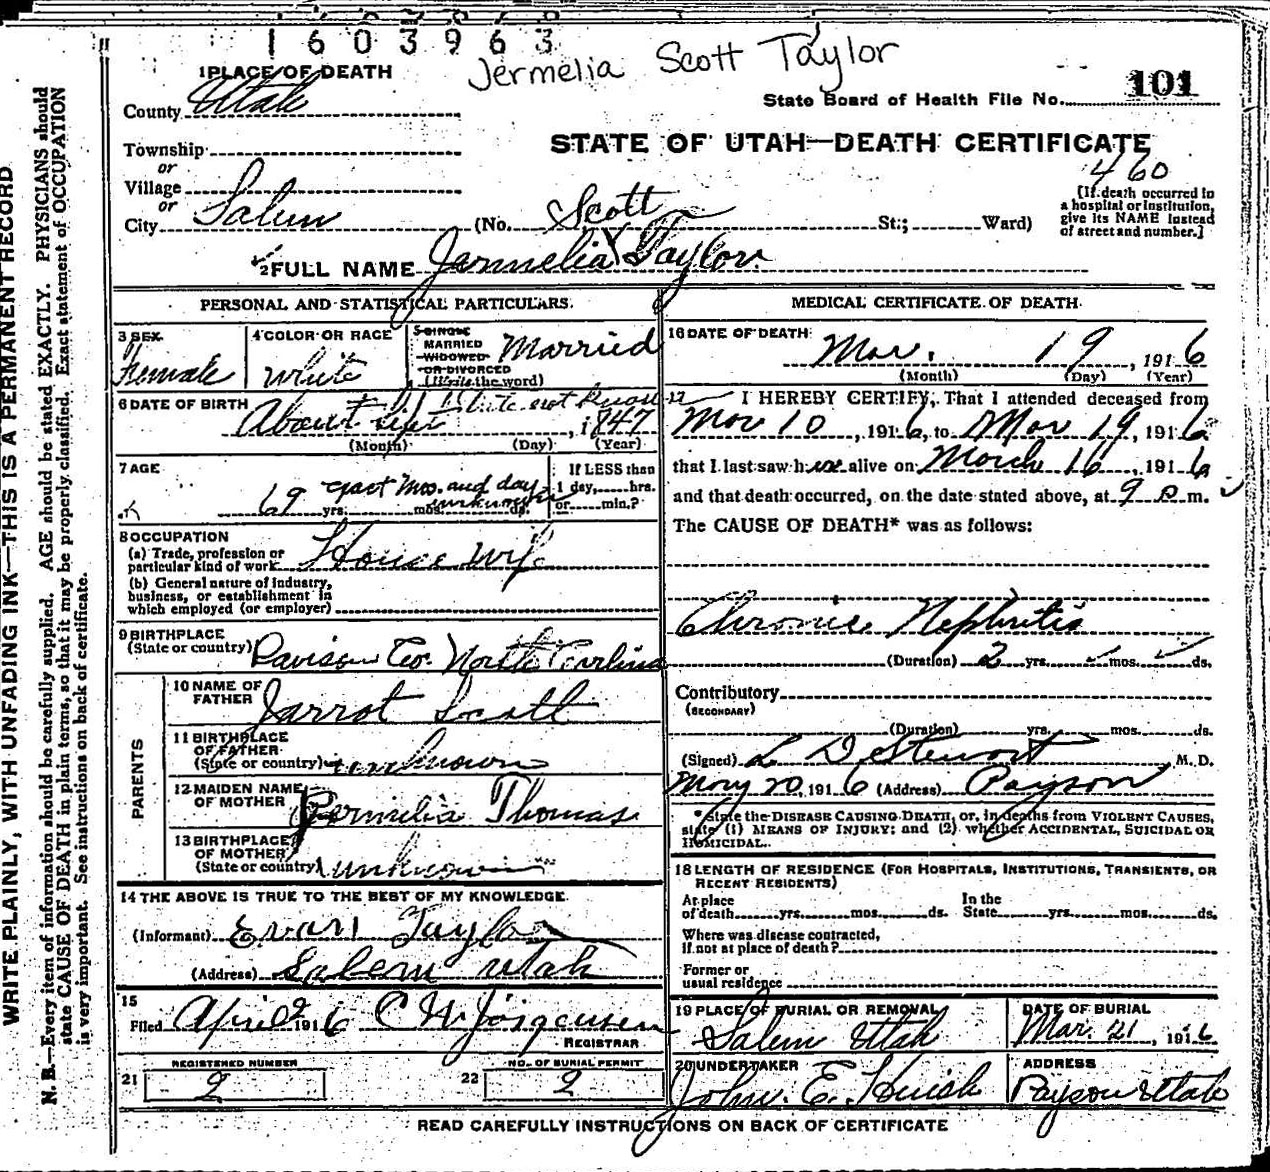 1603963
Jermelia Scott Taylor
1 PLACE OF DEATH
101
State Board of Health File No.
County Utah
STATE OF UTAH—DEATH CERTIFICATE
Township
460
or
Village
or
City Salem (No. St.; Ward)
[If death occurred in a hospital or institution, give its NAME instead of street and number.]
Scott
2 FULL NAME Jermelia Taylor
PERSONAL AND STATISTICAL PARTICULARS.
3 SEX Female
4 COLOR OR RACE White
5 SINGLE MARRIED WIDOWED OR DIVORCED (Write the word) Married
6 DATE OF BIRTH About 1847
(Month) (Day) (Year)
7 AGE 69 yrs. exact mos. and days unknown mos. ds.
If LESS than 1 day, hrs. or min.?
8 OCCUPATION
(a) Trade, profession or particular kind of work House wife
(b) General nature of industry, business, or establishment in which employed (or employer)
9 BIRTHPLACE (State or country) Davison Co. North Carlina
PARENTS
10 NAME OF FATHER Jarrot Scott
11 BIRTHPLACE OF FATHER (State or country) unknown
12 MAIDEN NAME OF MOTHER Permelia Thomas
13 BIRTHPLACE OF MOTHER (State or country) unknown
14 THE ABOVE IS TRUE TO THE BEST OF MY KNOWLEDGE.
(Informant) Evan Taylor
(Address) Salem Utah
15 Filed April 2 1916 C W Jorgensen
REGISTRAR
REGISTERED NUMBER
21 2
NO. OF BURIAL PERMIT
22 2
MEDICAL CERTIFICATE OF DEATH
16 DATE OF DEATH Mar. 19, 1916
(Month) (Day) (Year)
17 I HEREBY CERTIFY, That I attended deceased from
Mar 10, 1916, to Mar 19, 1916
that I last saw her alive on March 16, 1916
and that death occurred, on the date stated above, at 9 P.m.
The CAUSE OF DEATH* was as follows:
Chronic Nephritis
(Duration) 2 yrs. mos. ds.
Contributory
(SECONDARY)
(Duration) yrs. mos. ds.
(Signed) L D Stewart M. D.
20, 1916 (Address) Payson
*State the DISEASE CAUSING DEATH, or, in deaths from VIOLENT CAUSES, state (1) MEANS OF INJURY; and (2) whether ACCIDENTAL, SUICIDAL OR HOMICIDAL.
18 LENGTH OF RESIDENCE (FOR HOSPITALS, INSTITUTIONS, TRANSIENTS, OR RECENT RESIDENTS)
At place of death yrs. mos. ds. In the State yrs. mos. ds.
Where was disease contracted, if not at place of death?
Former or usual residence
19 PLACE OF BURIAL OR REMOVAL Salem Utah
DATE OF BURIAL Mar. 21, 1916
20 UNDERTAKER John E.
ADDRESS Payson Utah
READ CAREFULLY INSTRUCTIONS ON BACK OF CERTIFICATE
WRITE PLAINLY, WITH UNFADING INK—THIS IS A PERMANENT RECORD
N. B.—Every item of information should be carefully supplied. AGE should be stated EXACTLY. PHYSICIANS should
state CAUSE OF DEATH in plain terms, so that it may be properly classified. Exact statement of OCCUPATION
is very important. See instructions on back of certificate.